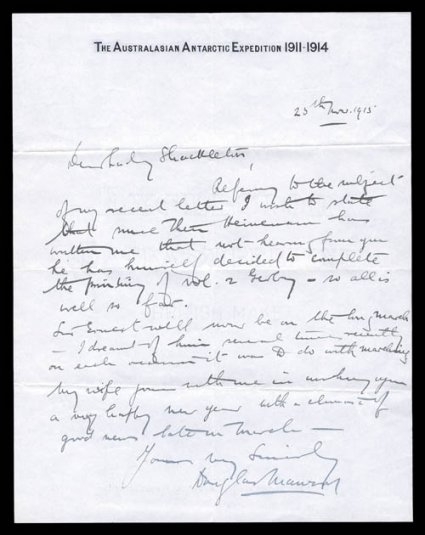 THE AUSTRALASIAN ANTARCTIC EXPEDITION 1911-1914
25th Nov. 1915
Dear Lady Shackleton,
Refering to the subject
of my recent letter I wish to state
that since then Heinemann has
written me that not hearing from you
he has himself decided to complete
the printing of vol. 2 - so all is
well so far.
Sir Ernest will now be on the long march
- I dreamt of him several times recently
on each occasion it was to do with marching
My wife joins with me in wishing you
a very happy new year with a chance of
good news late in March -
Yours very Sincerely
Douglas Mawson